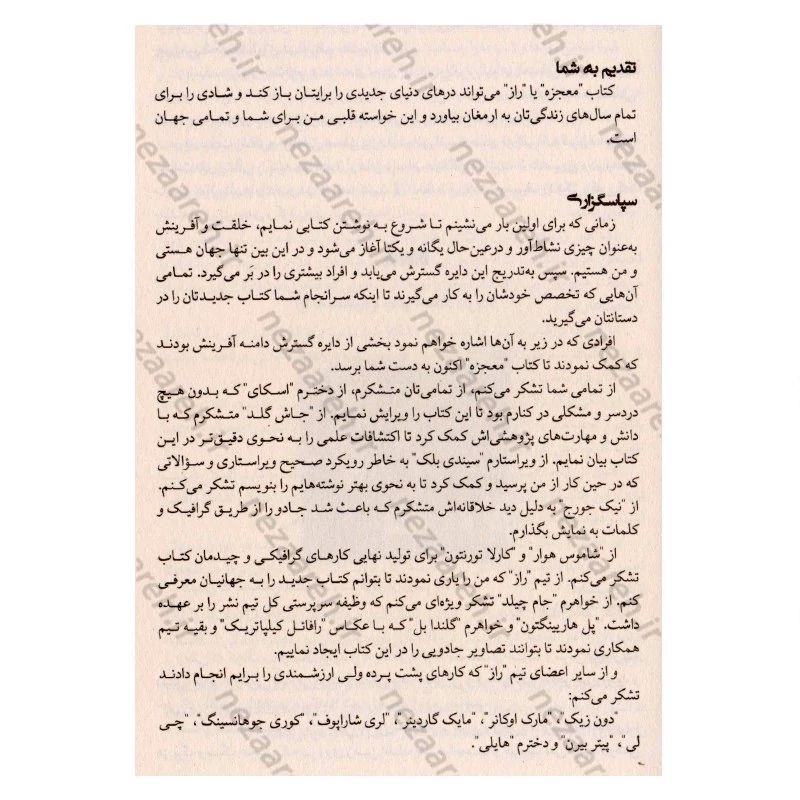 تقدیم به شما
کتاب "معجزه" یا "راز" می‌تواند درهای دنیای جدیدی را برایتان باز کند و شادی را برای
تمام سال‌های زندگی‌تان به ارمغان بیاورد و این خواسته قلبی من برای شما و تمامی جهان
است.
سپاسگزاری
زمانی که برای اولین بار می‌نشینم تا شروع به نوشتن کتابی نمایم، خلقت و آفرینش
به‌عنوان چیزی نشاط‌آور و درعین‌حال یگانه و یکتا آغاز می‌شود و در این بین تنها جهان هستی
و من هستیم. سپس به‌تدریج این دایره گسترش می‌یابد و افراد بیشتری را در بَر می‌گیرد. تمامی
آن‌هایی که تخصص خودشان را به کار می‌گیرند تا اینکه سرانجام شما کتاب جدیدتان را در
دستانتان می‌گیرید.
افرادی که در زیر به آن‌ها اشاره خواهم نمود بخشی از دایره گسترش دامنه آفرینش بودند
که کمک نمودند تا کتاب "معجزه" اکنون به دست شما برسد.
از تمامی شما تشکر می‌کنم، از تمامی‌تان متشکرم، از دخترم "اسکای" که بدون هیچ
دردسر و مشکلی در کنارم بود تا این کتاب را ویرایش نمایم. از "جاش گلد" متشکرم که با
دانش و مهارت‌های پژوهشی‌اش کمک کرد تا اکتشافات علمی را به نحوی دقیق‌تر در این
کتاب بیان نمایم. از ویراستارم "سیندی بلک" به خاطر رویکرد صحیح ویراستاری و سؤالاتی
که در حین کار از من پرسید و کمک کرد تا به نحوی بهتر نوشته‌هایم را بنویسم تشکر می‌کنم.
از "نیک جورج" به دلیل دید خلاقانه‌اش متشکرم که باعث شد جادو را از طریق گرافیک و
کلمات به نمایش بگذارم.
از "شاموس هوار" و "کارلا تورنتون" برای تولید نهایی کارهای گرافیکی و چیدمان کتاب
تشکر می‌کنم. از تیم "راز" که من را یاری نمودند تا بتوانم کتاب جدید را به جهانیان معرفی
کنم. از خواهرم "جام چیلد" تشکر ویژه‌ای می‌کنم که وظیفه سرپرستی کل تیم نشر را بر عهده
داشت. "پل هارینگتون" و خواهرم "گلندا بل" که با عکاس "رافائل کیلپاتریک" و بقیه تیم
همکاری نمودند تا بتوانند تصاویر جادویی را در این کتاب ایجاد نماییم.
و از سایر اعضای تیم "راز" که کارهای پشت پرده ولی ارزشمندی را برایم انجام دادند
تشکر می‌کنم:
"دون زیک"، "مارک اوکانر"، "مایک گاردینر"، "لری شاراپوف"، "کوری جوهانسینگ"، "چی
لی"، "پیتر بیرن" و دخترم "هایلی".
nezaareh.ir